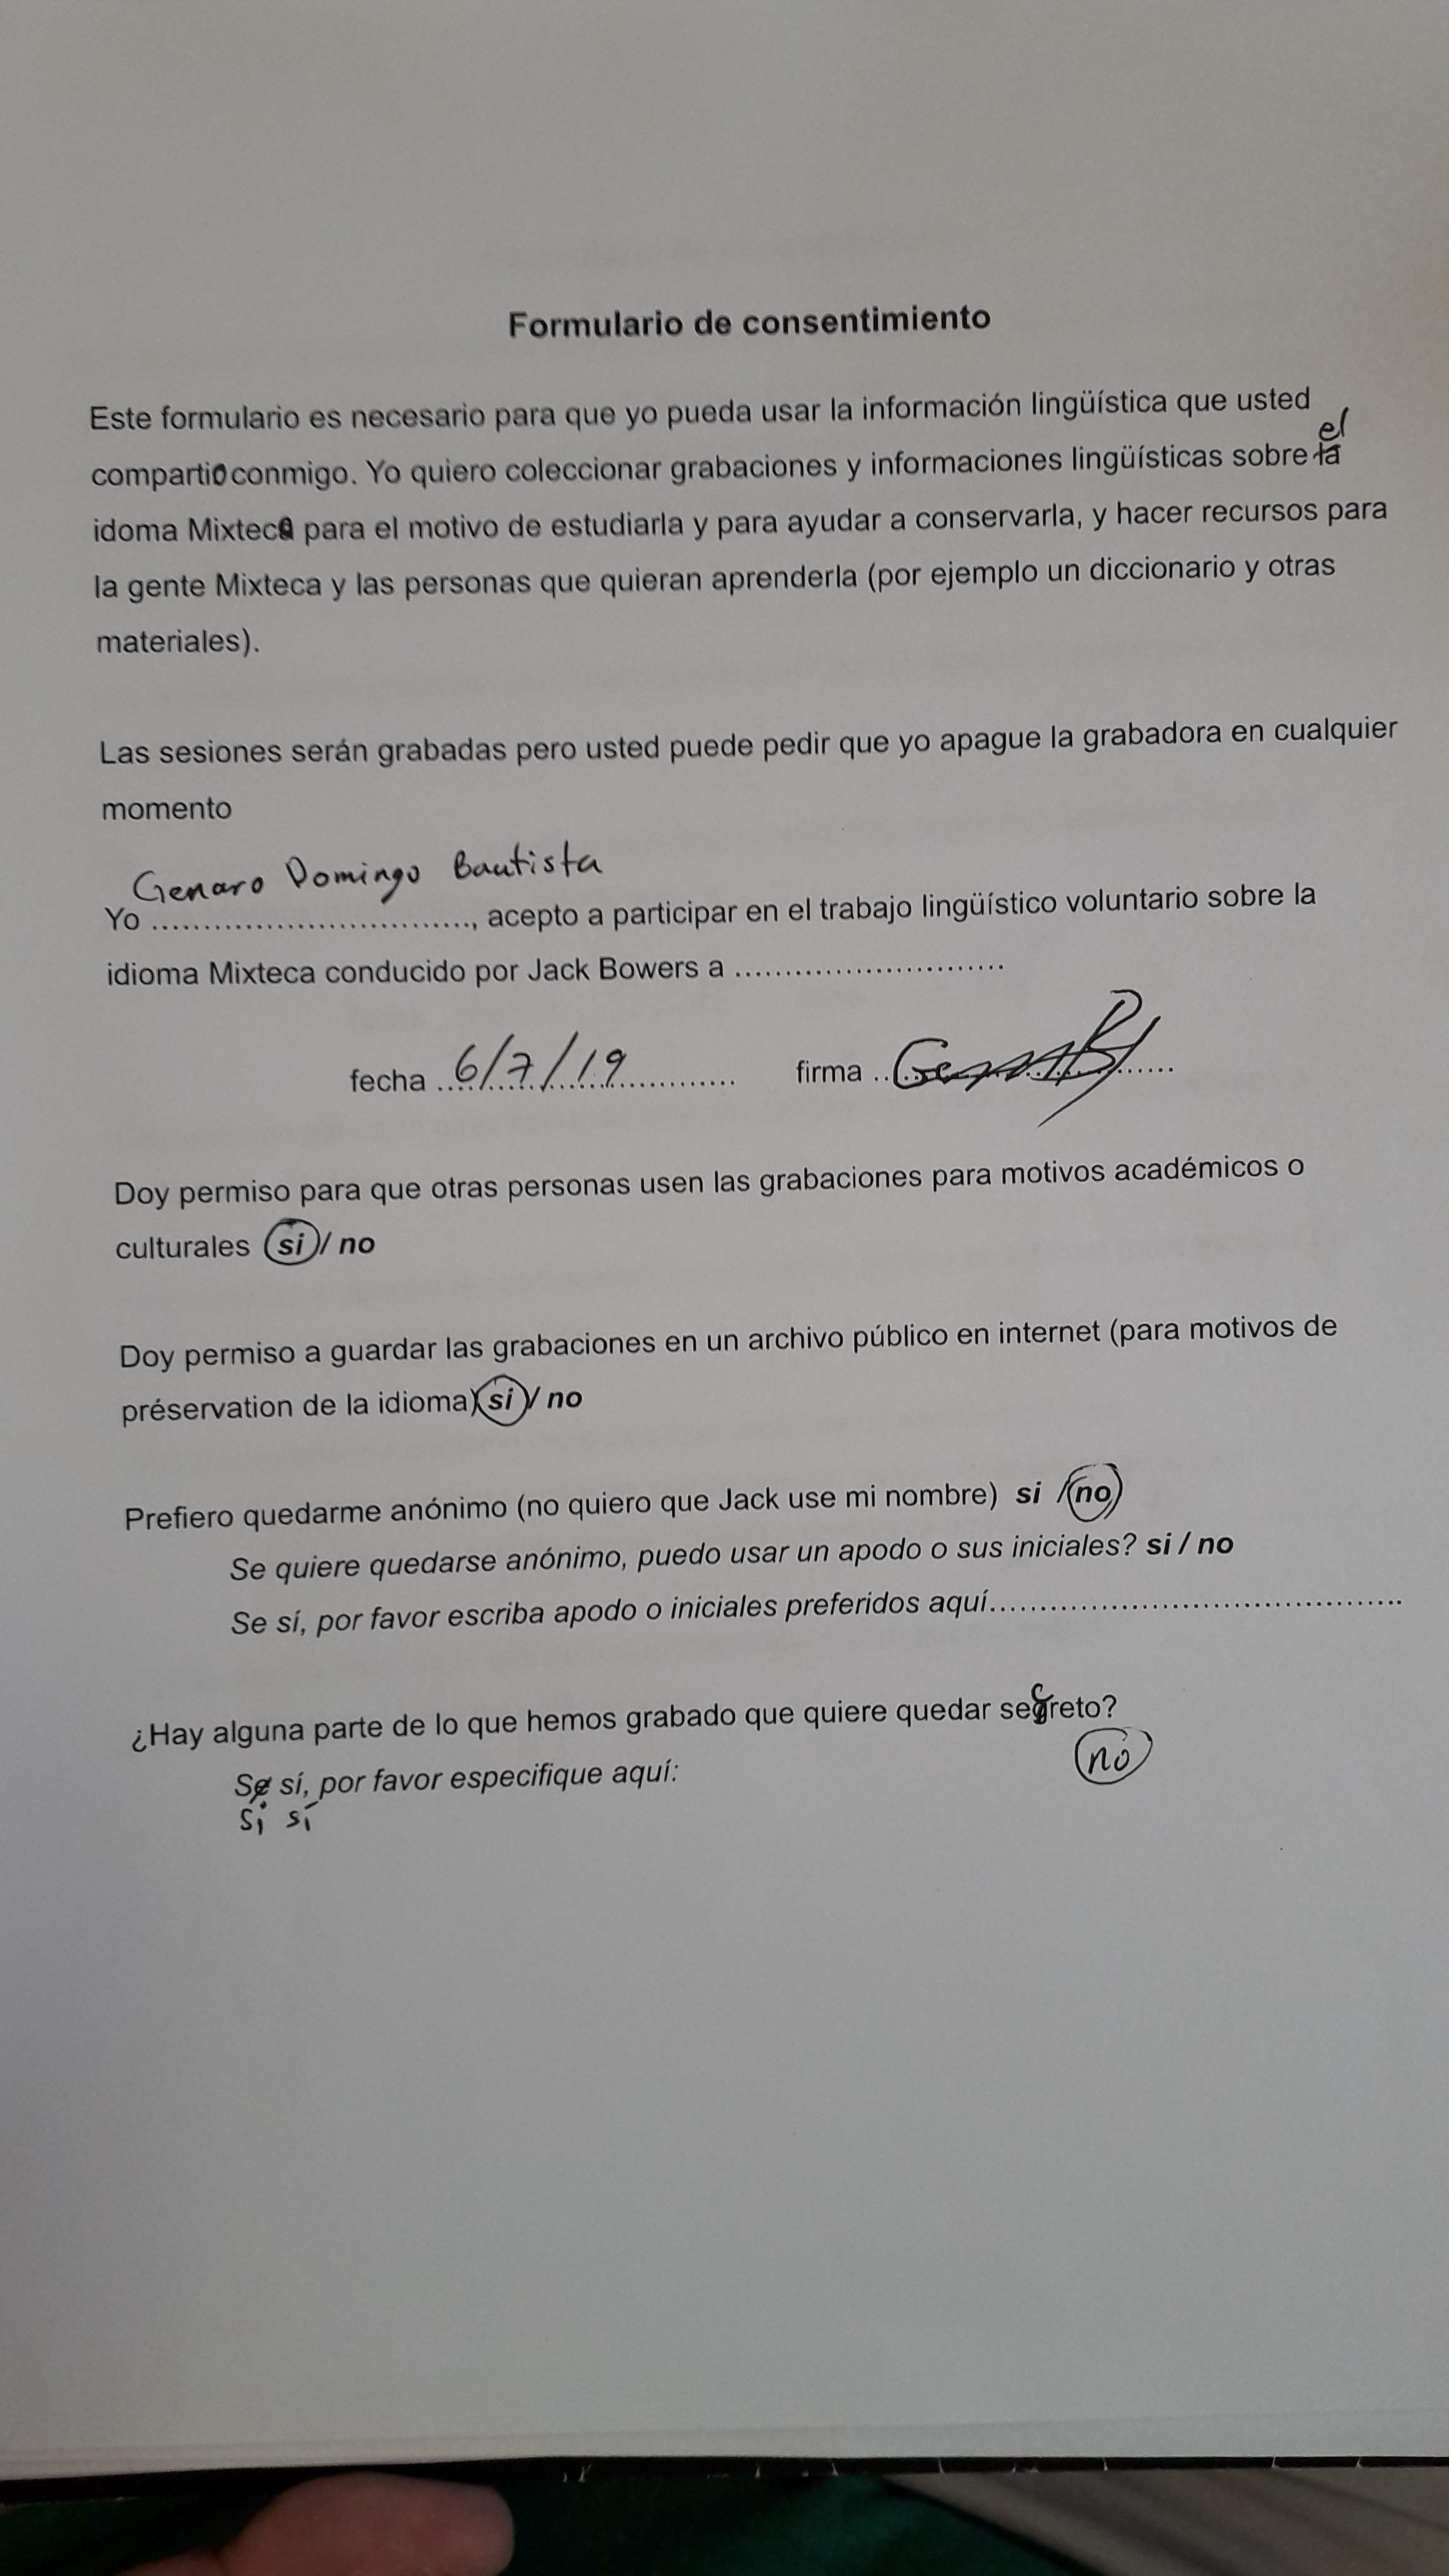 Formulario de consentimiento
Este formulario es necesario para que yo pueda usar la información lingüística que usted
el
compartió conmigo. Yo quiero coleccionar grabaciones y informaciones lingüísticas sobre la
idoma Mixteco para el motivo de estudiarla y para ayudar a conservarla, y hacer recursos para
la gente Mixteca y las personas que quieran aprenderla (por ejemplo un diccionario y otras
materiales).
Las sesiones serán grabadas pero usted puede pedir que yo apague la grabadora en cualquier
momento
Genaro Domingo Bautista
Yo ................................, acepto a participar en el trabajo lingüístico voluntario sobre la
idioma Mixteca conducido por Jack Bowers a ...........................
fecha 6/7/19 firma
Doy permiso para que otras personas usen las grabaciones para motivos académicos o
culturales si / no
Doy permiso a guardar las grabaciones en un archivo público en internet (para motivos de
préservation de la idioma) si / no
Prefiero quedarme anónimo (no quiero que Jack use mi nombre) si / no
Se quiere quedarse anónimo, puedo usar un apodo o sus iniciales? si / no
Se sí, por favor escriba apodo o iniciales preferidos aquí..........................................
¿Hay alguna parte de lo que hemos grabado que quiere quedar secreto?
no
Se sí, por favor especifique aquí:
Si sí